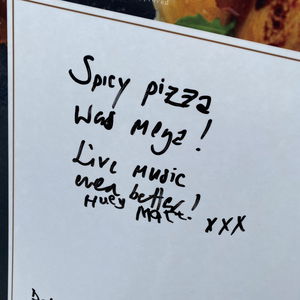 Spicy pizza
was mega!
Live music
even better!
Huey
xxx